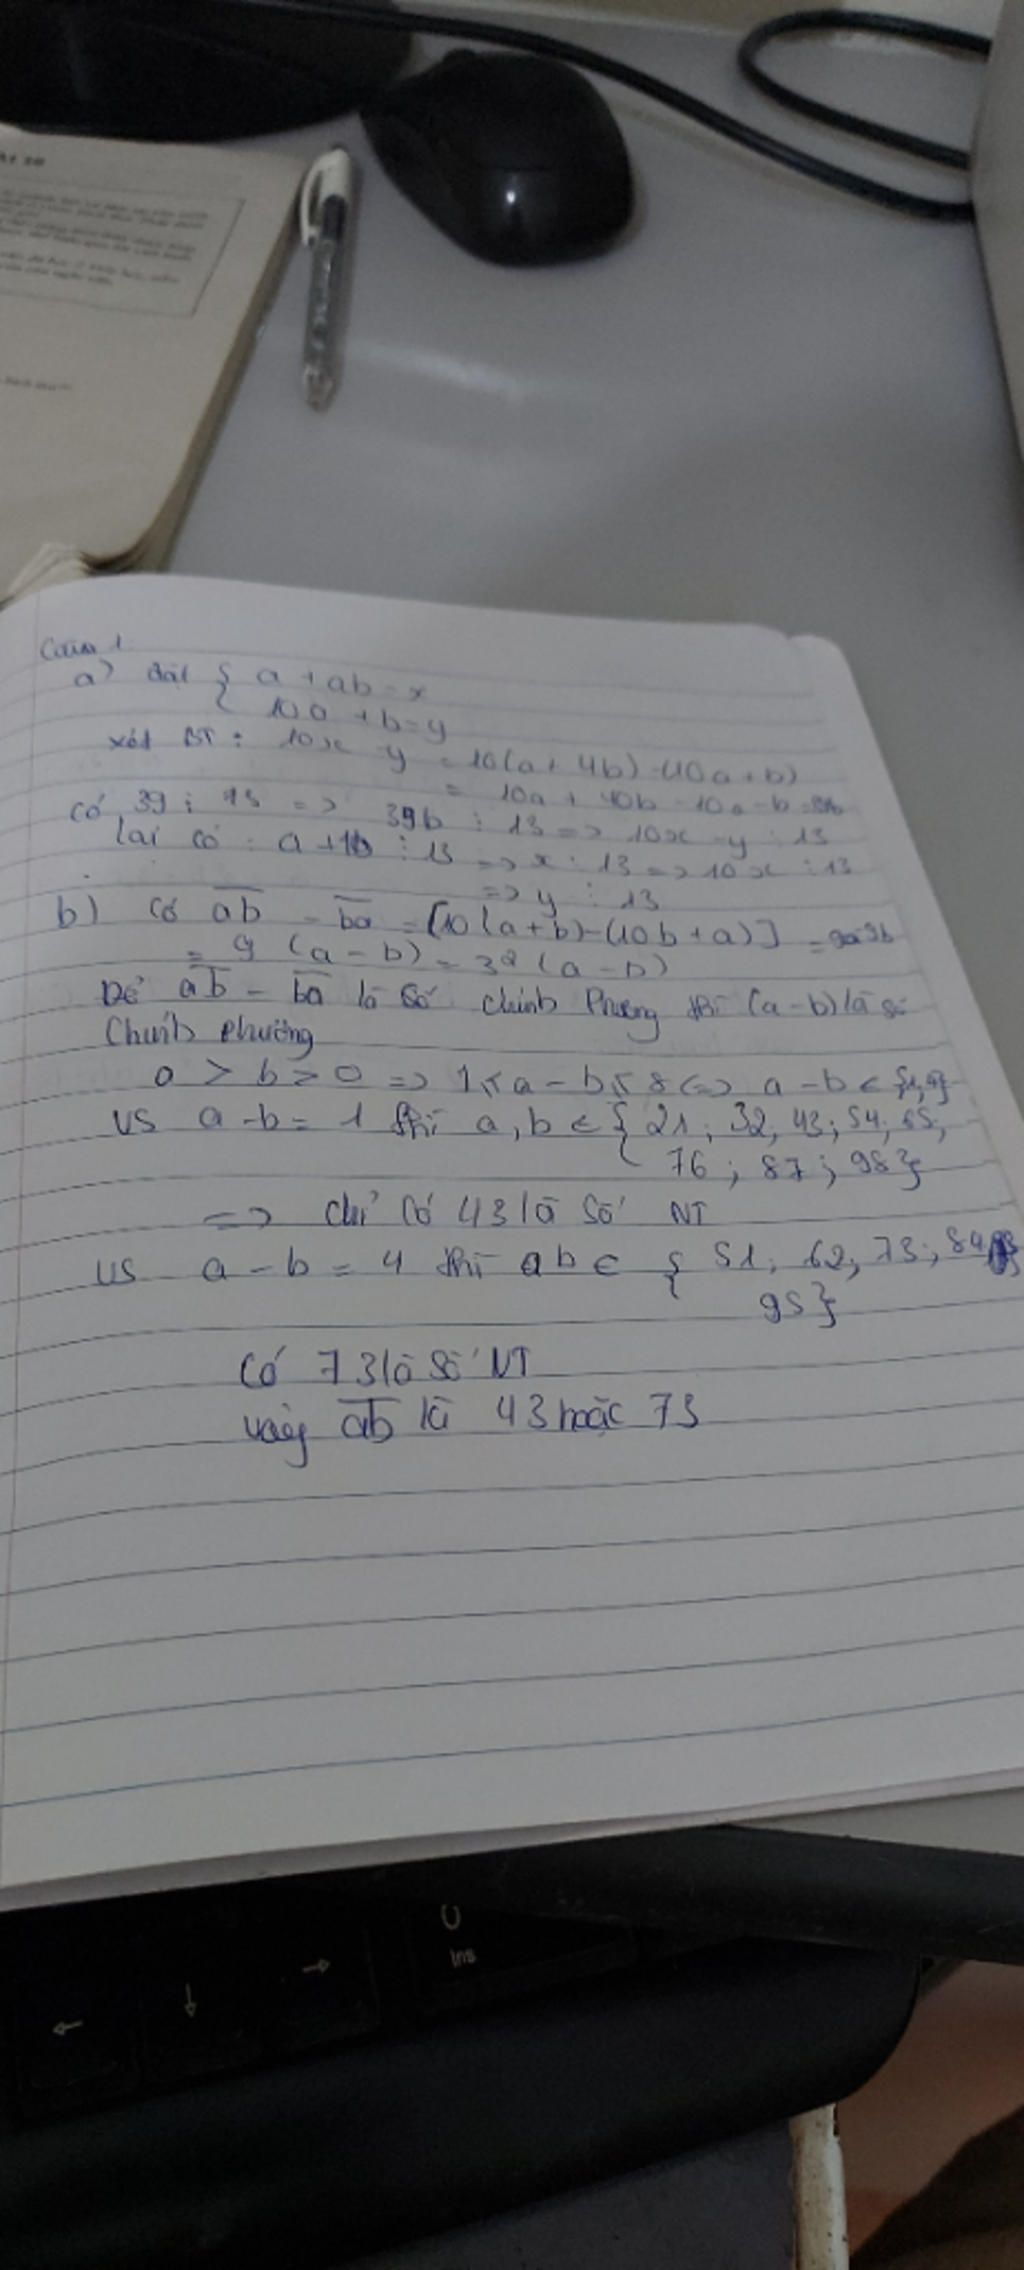 Câu 1.
a) Đặt { a + ab = x
10a + b = y
xét BT : 10x - y = 10(a + 4b) - (10a + b)
= 10a + 40b - 10a - b = 39b
Có 39 ⋮ 13 => 39b ⋮ 13 => 10x - y ⋮ 13
lại có : a + 4b ⋮ 13 => x ⋮ 13 => 10x ⋮ 13
=> y ⋮ 13
b) Có ab - ba = [10(a+b) - (10b + a)] = 9a-9b
= 9 (a - b) = 3² (a - b)
Để ab - ba là số chính Phương thì (a-b) là số
Chính phương
a > b > 0 => 1 ≤ a - b ≤ 8 <=> a - b ∈ {1,4}
VS a - b = 1 thì a,b ∈ { 21 ; 32, 43 ; 54 ; 65;
76 ; 87 ; 98}
=> chỉ có 43 là số NT
VS a - b = 4 thì ab ∈ { 51 ; 62, 73 ; 84
95}
Có 73 là số NT
vậy ab là 43 hoặc 73
U
Ins
← ↓ →